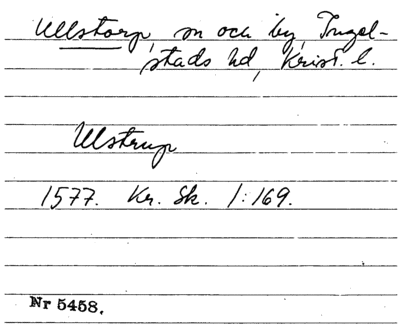 Ullstorp, sn och by, Ingel-
stads hd, Krist. l.
Ulstrup
1577. Kr. Sk. 1:169.
Nr 5458.